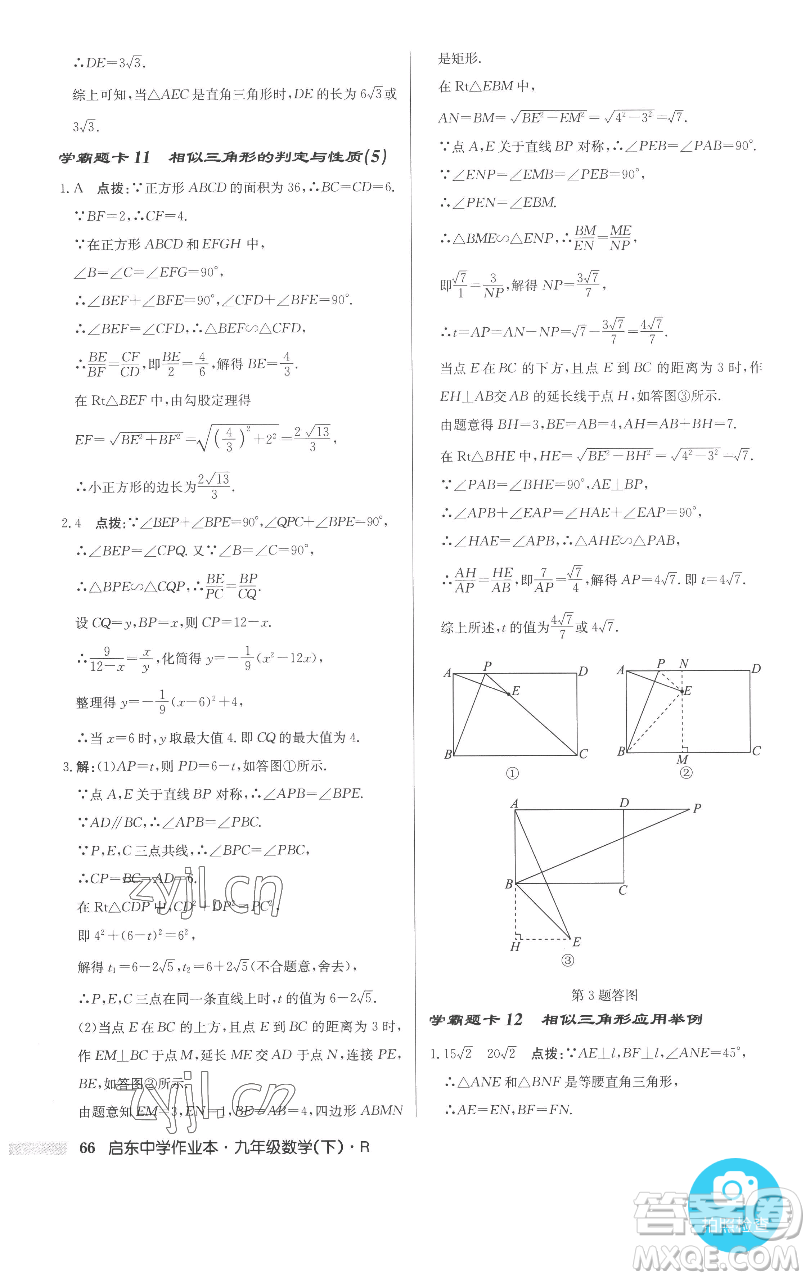 ∴DE=3√3.
综上可知,当△AEC是直角三角形时,DE的长为6√3或
3√3.
学霸题卡11 相似三角形的判定与性质(5)
1.A 点拨:∵正方形ABCD的面积为36,∴BC=CD=6.
∵BF=2,∴CF=4.
∵在正方形ABCD和EFGH中,
∠B=∠C=∠EFG=90°,
∴∠BEF+∠BFE=90°,∠CFD+∠BFE=90°,
∴∠BEF=∠CFD,∴△BEF∽△CFD,
∴BE/BF=CF/CD,即BE/2=4/6,解得BE=4/3.
在Rt△BEF中,由勾股定理得
EF=√(BE²+BF²)=√((4/3)²+2²)=2√13/3,
∴小正方形的边长为2√13/3.
2.4 点拨:∵∠BEP+∠BPE=90°,∠QPC+∠BPE=90°,
∴∠BEP=∠CPQ.又∵∠B=∠C=90°,
∴△BPE∽△CQP,∴BE/PC=BP/CQ.
设CQ=y,BP=x,则CP=12-x.
∴9/(12-x)=x/y,化简得y=-1/9(x²-12x),
整理得y=-1/9(x-6)²+4,
∴当x=6时,y取最大值4.即CQ的最大值为4.
3.解:(1)AP=t,则PD=6-t,如答图①所示.
∵点A,E关于直线BP对称,∴∠APB=∠BPE.
∵AD∥BC,∴∠APB=∠PBC.
∵P,E,C三点共线,∴∠BPC=∠PBC,
∴CP=BC=AD=6.
在Rt△CDP中,CD²+DP²=PC²,
即4²+(6-t)²=6²,
解得t₁=6-2√5,t₂=6+2√5(不合题意,舍去),
∴P,E,C三点在同一条直线时,t的值为6-2√5.
(2)当点E在BC的上方,且点E到BC的距离为3时,
作EM⊥BC于M,延长ME交AD于N,连接PE,
BE,如答图②所示.
由题意知EM=3,EN=1,BE=AB=4,四边形ABMN
是矩形.
在Rt△EBM中,
AN=BM=√(BE²-EM²)=√(4²-3²)=√7.
∵点A,E关于直线BP对称,∴∠PEB=∠A=90°,
∵∠ENP=∠EMB=∠PEB=90°,
∴∠PEN=∠EBM.
∴△BME∽△ENP,∴BM/EN=ME/NP,
即√7/1=3/NP,解得NP=3√7/7,
∴t=AP=AN-NP=√7-3√7/7=4√7/7;
当点E在BC的下方,且点E到BC的距离为3时,作
EH⊥AB交AB的延长线于点H,如答图③所示.
由题意得BH=3,BE=AB=4,AH=AB+BH=7.
在Rt△BHE中,HE=√(BE²-BH²)=√(4²-3²)=√7.
∵∠PAB=∠BHE=90°,AE⊥BP,
∴∠APB+∠EAP=∠HAE+∠EAP=90°,
∴∠HAE=∠APB,∴△AHE∽△PAB,
∴AH/AP=HE/AB,即7/AP=√7/4,解得AP=4√7.即t=4√7.
综上所述,t的值为4√7/7或4√7.
A P D
E
B C
①
A P N D
E
B M C
②
A D P
B C
H E
③
第3题答图
学霸题卡12 相似三角形应用举例
1.15√2 20√2 点拨:∵AE⊥l,BF⊥l,∠ANE=45°,
∴△ANE和△BNF是等腰直角三角形,
∴AE=EN,BF=FN.
66 启东中学作业本·九年级数学(下)·R
zyjl.cn
zyjl.cn
答案卷
拍照检查
MXQE.COM